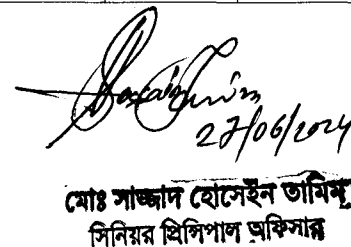 27/06/2024
মোঃ সাজ্জাদ হোসেইন তামিম
সিনিয়র প্রিন্সিপাল অফিসার